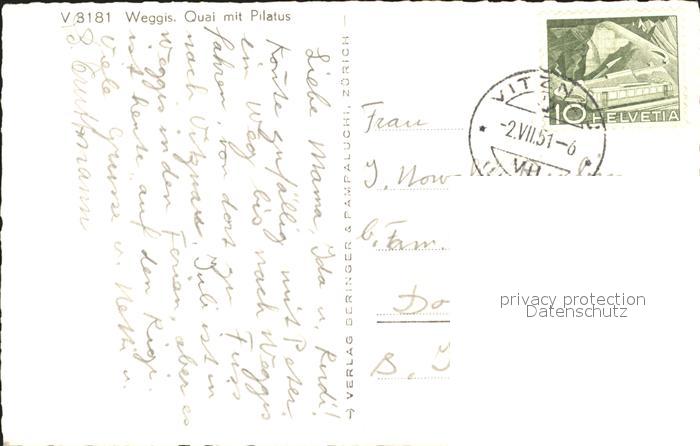 V 3181 Weggis. Quai mit Pilatus
Liebe Mama, Ida u. Rudi!
Konte zufällig mit Peter
ein Weg bis nach Weggis
fahren, von dort zu Fuss
nach Vitznau. Juli ist in
Weggis in den Ferien, aber es
ist heute auf den Rigi.
Viele Grüsse v. Netti u.
→ VERLAG BERINGER & PAMPALUCHI, ZÜRICH
10 HELVETIA
VITZN
-2.VII.51-6
Frau
J. Now
b. Fam.
Do
privacy protection
Datenschutz